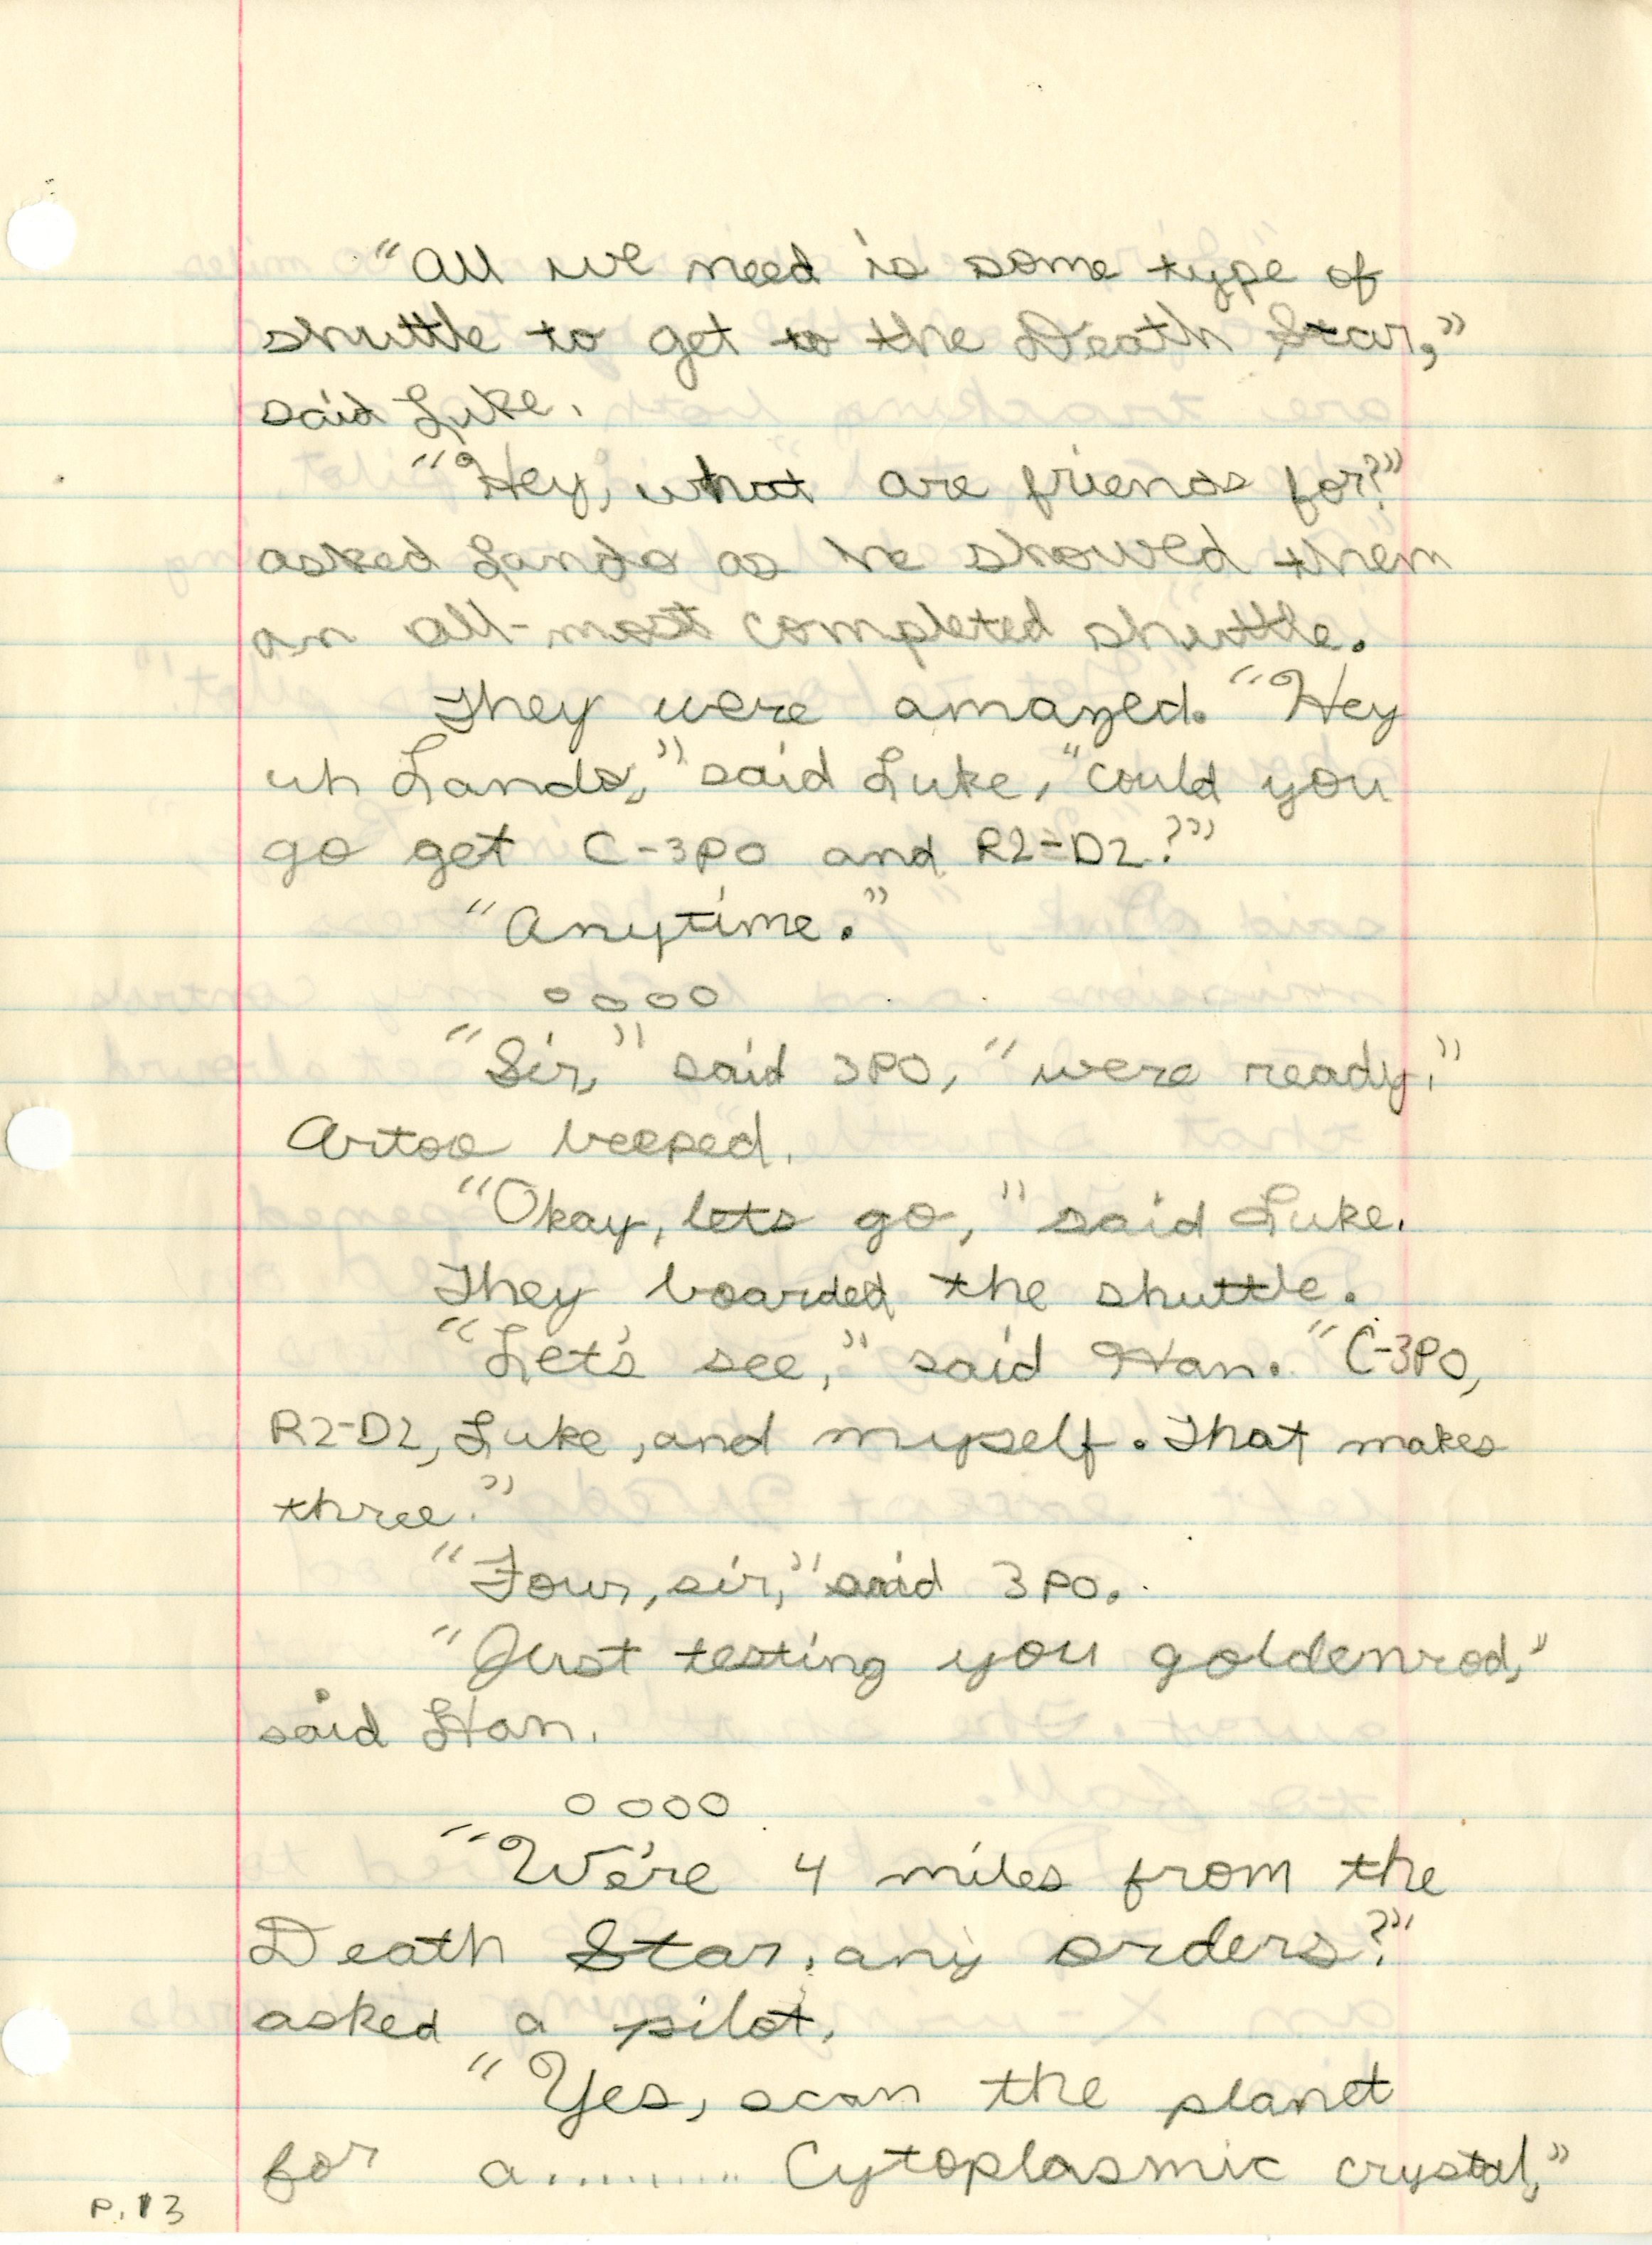 "All we need is some type of
shuttle to get to the Death Star,"
said Luke.
"Hey, what are friends for?"
asked Lando as he showed them
an all-most completed shuttle.
They were amazed. "Hey
uh Lando," said Luke, "could you
go get C-3PO and R2-D2?"
"Anytime."
oooo
"Sir," said 3PO, "were ready,"
Artoo beeped.
"Okay, lets go," said Luke.
They boarded the shuttle.
"Let's see," said Han. "C-3PO,
R2-D2, Luke, and myself. That makes
three."
"Four, sir," said 3PO.
"Just testing you goldenrod,"
said Han.
oooo
"We're 4 miles from the
Death Star, any orders?"
asked a pilot.
"Yes, scan the planet
for a......... Cytoplasmic crystal,"
P.13